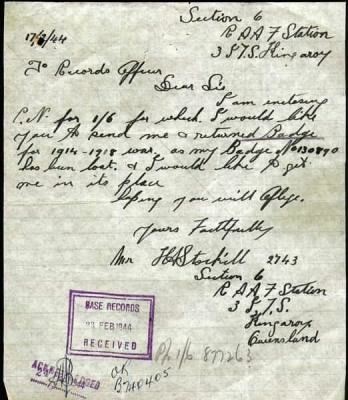 Section 6
R A A F Station
3 S.T.S. Kingaroy
17/2/44
To Records Officer
Dear Sir
I am inclosing
P.N. for 1/6 for which I would like
you to send me a returned Badge
for 1914-1918 war. as my Badge No 130890
has bun lost. & I would like to get
one in its place
hoping you will oblige.
Yours Faithfully
Mr H Stockill 2743
Section 6
R A A F Station
3 S.T.S.
Kingaroy
Queensland
BASE RECORDS
23 FEB 1944
RECEIVED
P.N. 1/6 877263
ACKNOWLEDGED